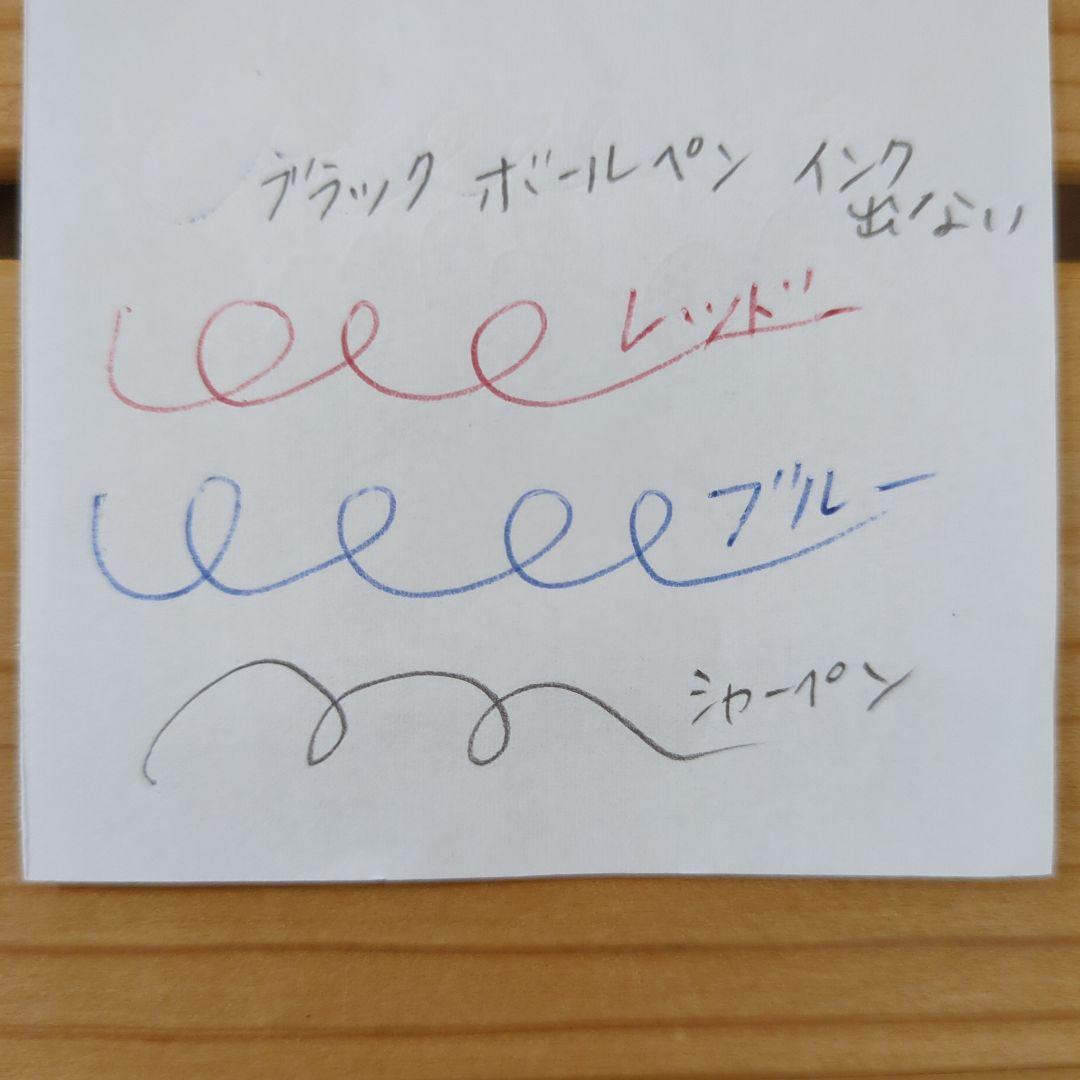 ブラック ボールペン インク
出ない
レッド
ブルー
シャーペン